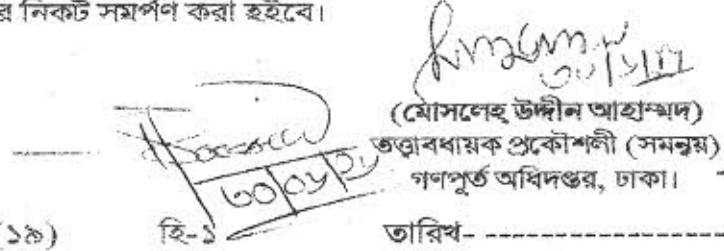 র নিকট সমর্পণ করা হইবে।
(মোসলেহ উদ্দীন আহাম্মদ)
তত্ত্বাবধায়ক প্রকৌশলী (সমন্বয়)
গণপূর্ত অধিদপ্তর, ঢাকা।
(১৯) হি-১ তারিখ- --------------------